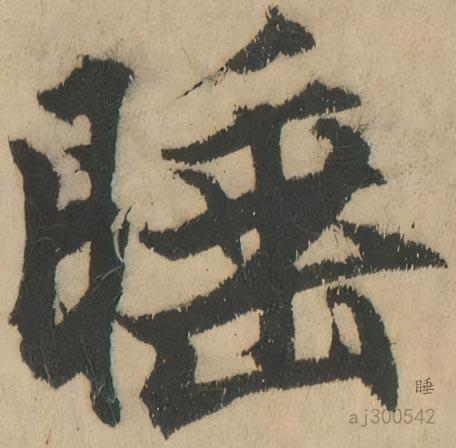 睡
睡
aj300542